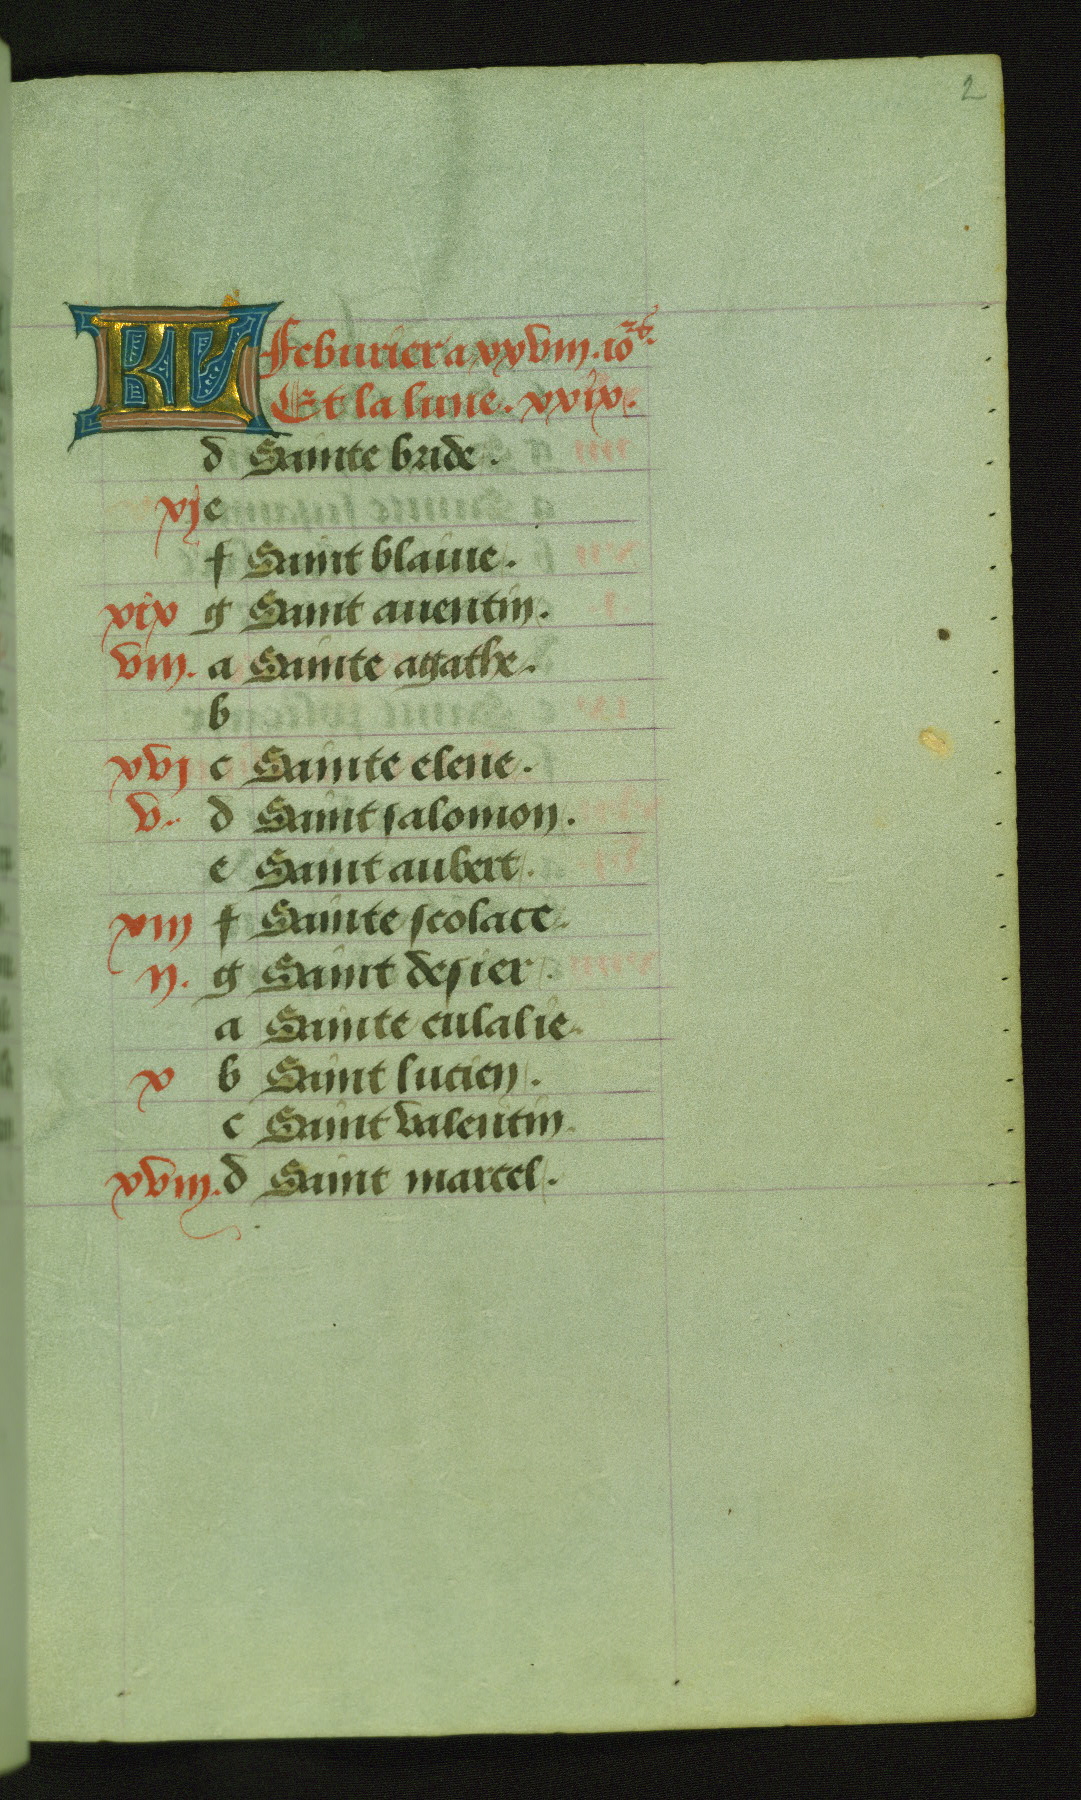 2
KL Feburier a xxviii. iors.
Et la lune. xxix.
d Sainte bride.
xj e
f Saint blaiue.
xix g Saint auentin.
viii. a Sainte agathe.
b
xvj c Sainte elene.
v. d Saint salomon.
e Saint aubert.
xiii f Sainte scolace.
ii. g Saint desier.
a Sainte eulalie.
x b Saint lucien.
c Saint valentin.
xviii. d Saint marcel.